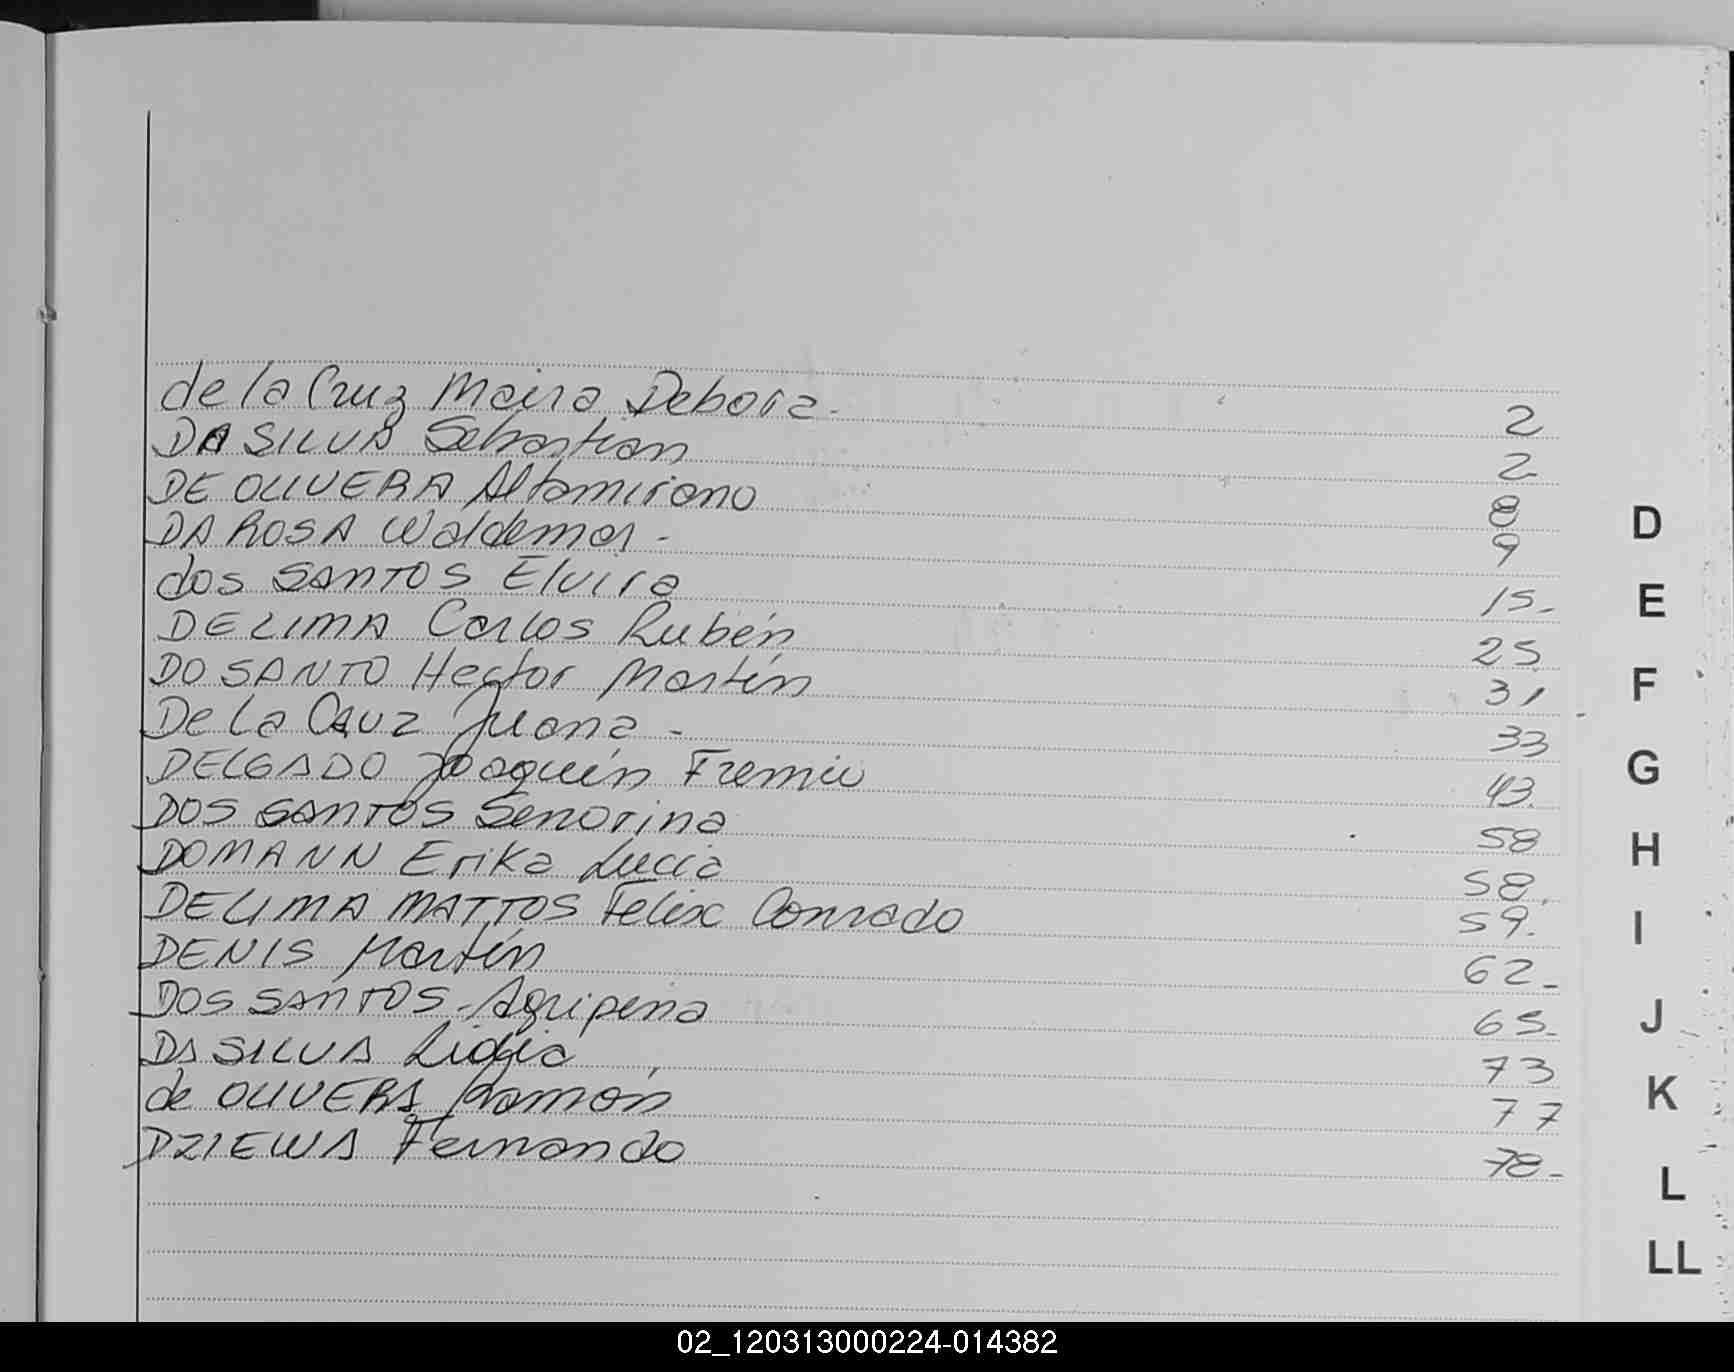 de la Cruz Maira Debora. 2
DA SILVA Sebastian 2
DE OLIVERA Altamirano 8
DA ROSA Waldemar - 9
dos SANTOS Elvira 15-
DELIMA Carlos Rubén 25
DO SANTO Hector Martín 31
De La Cruz Juana - 33
DELGADO Joaquín 43
DOS SANTOS Senorina 58
DOMANN Erika Lucia 58.
DELIMA MATTOS Felix Conrado 59.
DENIS Martín 62-
DOS SANTOS Agripina 65-
DA SILVA Lidia 73
de OLIVERA Ramón 77
DZIEWA Fernando 78-
D
E
F
G
H
I
J
K
L
LL
02_120313000224-014382